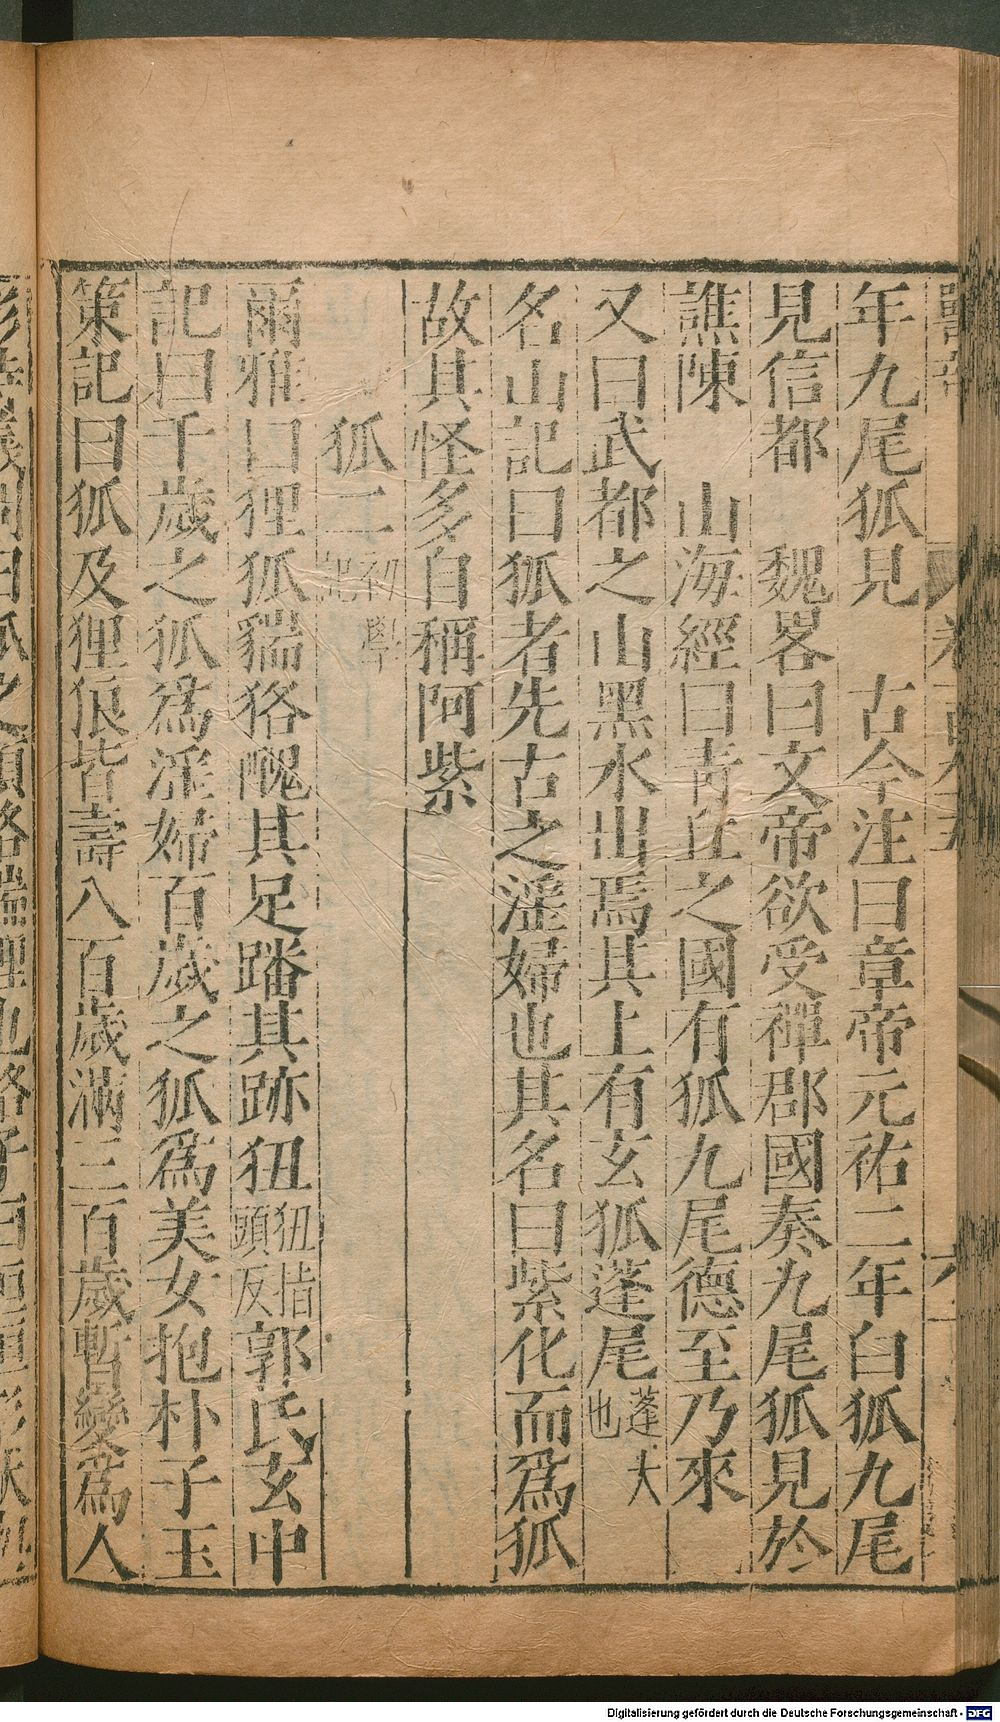 年九尾狐見　古今注曰章帝元祐二年白狐九尾
見信都　魏畧曰文帝欲受禪郡國奏九尾狐見於
譙陳　山海經曰青丘之國有狐九尾德至乃來
又曰武都之山黑水出焉其上有玄狐蓬尾蓬大也
名山記曰狐者先古之淫婦也其名曰紫化而爲狐
故其怪多自稱阿紫
狐二初學記
爾雅曰狸狐貒狢醜其足蹯其跡狃狃指頭反郭氏玄中
記曰千歲之狐爲淫婦百歲之狐爲美女抱朴子玉
策記曰狐及狸狼皆壽八百歲滿三百歲暫變爲人
Digitalisierung gefördert durch die Deutsche Forschungsgemeinschaft - DFG